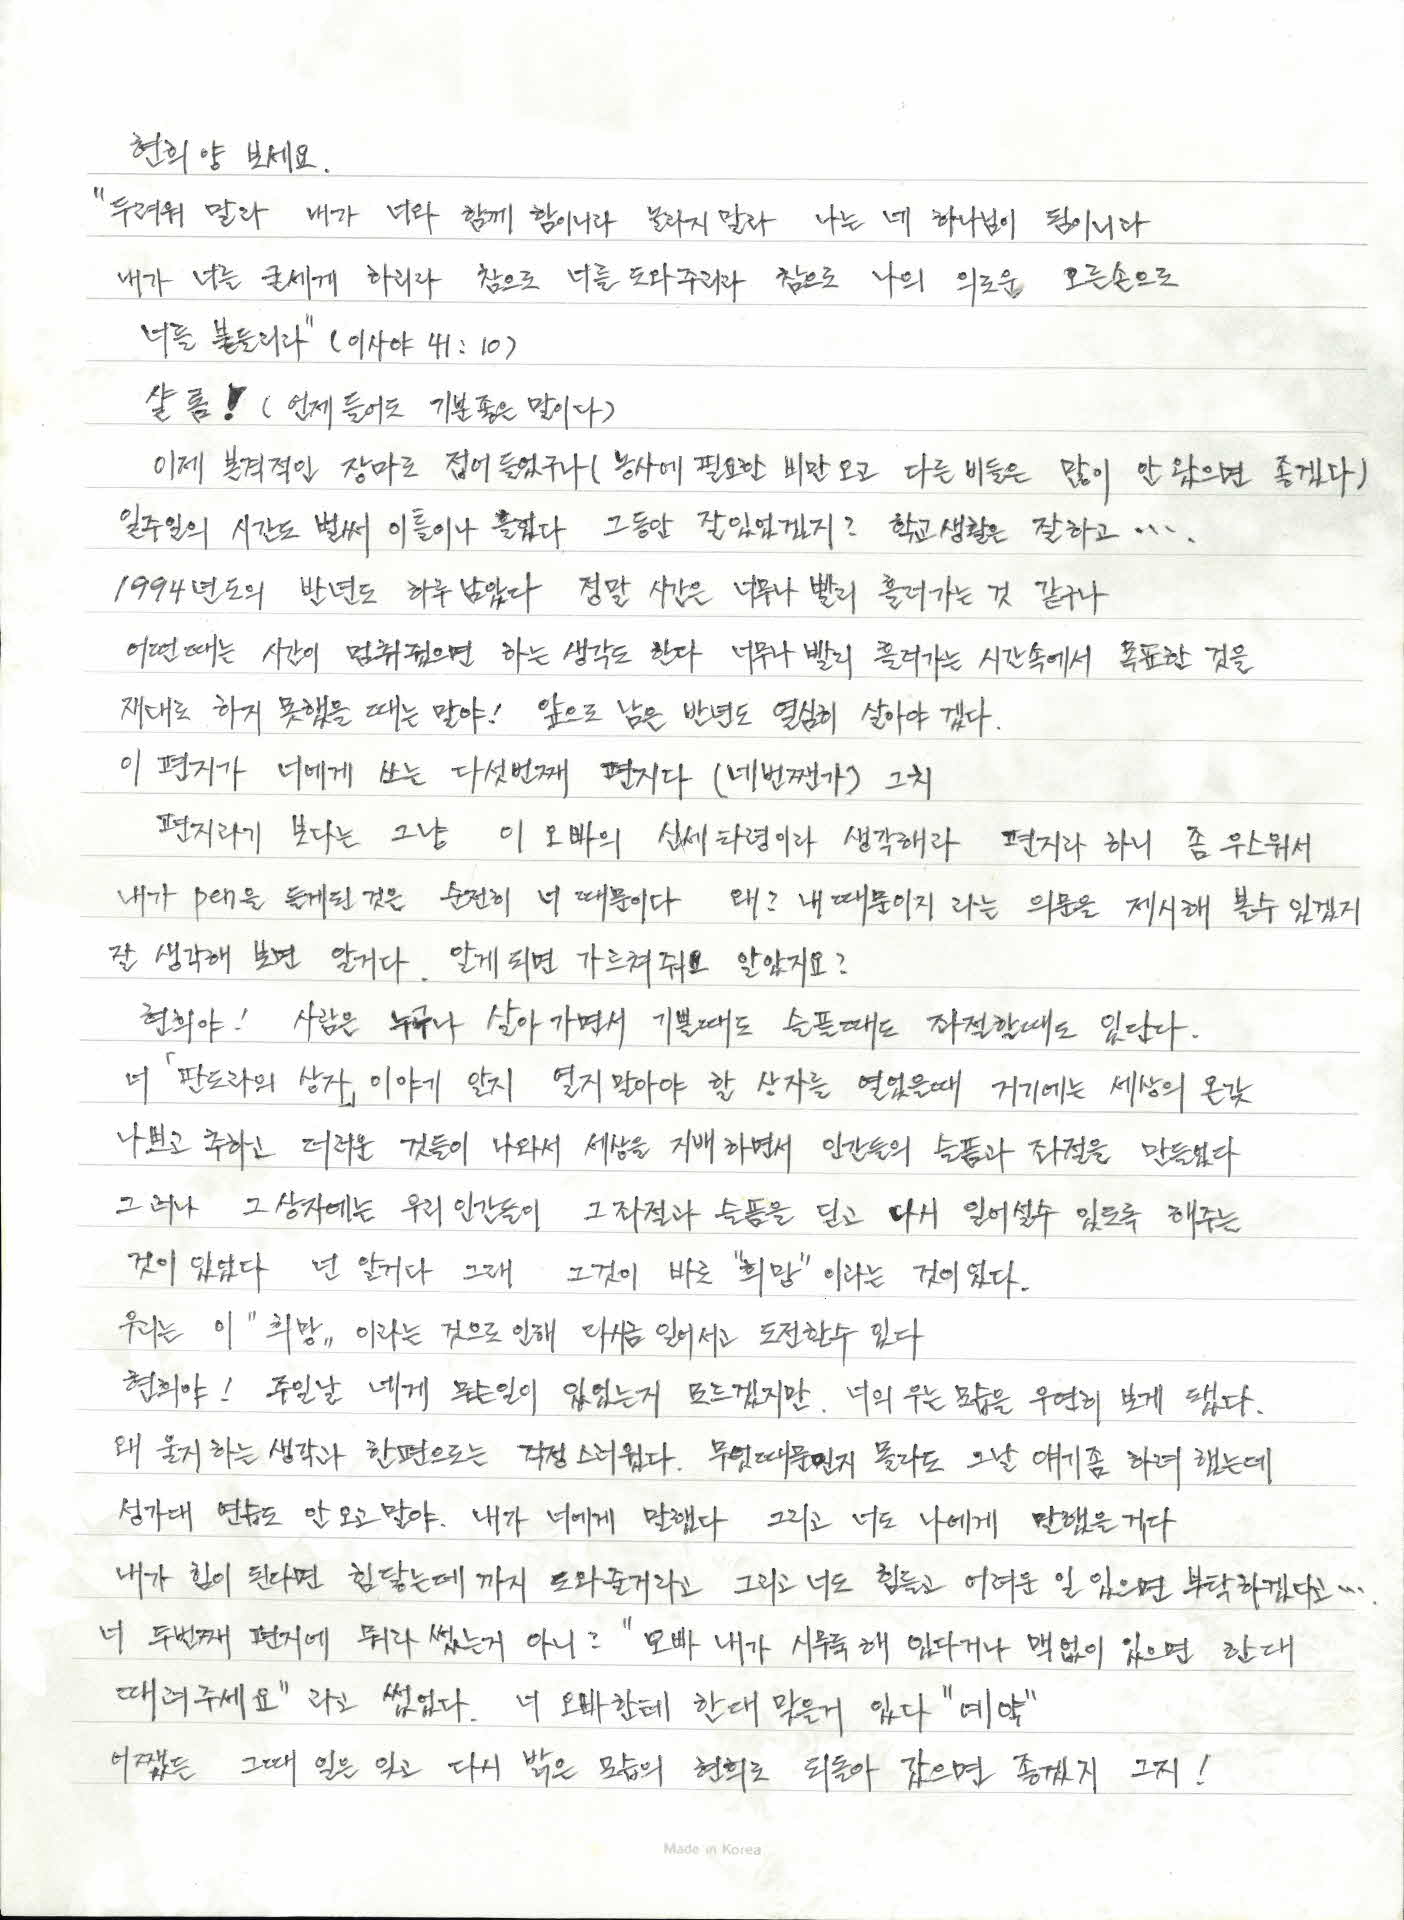 현희양 보세요.
"두려워 말라 내가 너와 함께 함이니라 놀라지 말라 나는 네 하나님이 됨이니라
내가 너를 굳세게 하리라 참으로 너를 도와주리라 참으로 나의 의로운 오른손으로
너를 붙들리라" (이사야 41:10)
샬롬! (언제 들어도 기분 좋은 말이다)
이제 본격적인 장마로 접어 들었구나 (농사에 필요한 비만 오고 다른 비들은 많이 안 왔으면 좋겠다)
일주일의 시간도 벌써 이틀이나 흘렀다 그동안 잘있었겠지? 학교생활은 잘하고 ….
1994년도의 반년도 하루 남았다 정말 시간은 너무나 빨리 흘러가는 것 같구나
어떤때는 시간이 멈춰줬으면 하는 생각도 한다 너무나 빨리 흘러가는 시간속에서 목표한 것을
재대로 하지 못했을 때는 말야! 앞으로 남은 반년도 열심히 살아야 겠다.
이 편지가 너에게 쓰는 다섯번째 편지다 (네번짼가) 그치
편지라기 보다는 그냥 이 오빠의 신세타령이라 생각해라 편지라 하니 좀 우스워서
내가 pen을 들게된 것은 순전히 너 때문이다 왜? 내때문이지 라는 의문을 제시해 볼수 있겠지
잘 생각해 보면 알거다. 알게 되면 가르쳐줘요 알았지요?
현희야! 사람은 누구나 살아가면서 기쁠때도 슬플때도 좌절할때도 있단다.
너 「판도라의 상자」 이야기 알지 열지말아야 할 상자를 열었을때 거기에는 세상의 온갖
나쁘고 추하고 더러운 것들이 나와서 세상을 지배하면서 인간들의 슬픔과 좌절을 만들었다
그러나 그 상자에는 우리 인간들이 그 좌절과 슬픔을 딛고 다시 일어설수 있도록 해주는
것이 있었다 넌 알거다 그래 그것이 바로 "희망" 이라는 것이었다.
우리는 이 "희망" 이라는 것으로 인해 다시금 일어서고 도전할수 있다
현희야! 주일날 네게 무슨일이 있었는지 모르겠지만. 너의 우는 모습을 우연히 보게 됐다.
왜 울지 하는 생각과 한편으로는 걱정스러웠다. 무엇때문인지 몰라도 그날 얘기좀 하려 했는데
성가대 연습도 안 오고 말야. 내가 너에게 말했다 그리고 너도 나에게 말했을 게다
내가 힘이 된다면 힘닿는데 까지 도와줄거라고 그리고 너도 힘들고 어려운 일 있으면 부탁하겠다고….
너 두번째 편지에 뭐라 썼는거 아니? "오빠 내가 시무룩해 있다거나 맥없이 있으면 한대
때려주세요" 라고 썼었다. 너 오빠한테 한대 맞을거 있다 "예약"
어쨌든 그때 일은 잊고 다시 밝은 모습의 현희로 되돌아 갔으면 좋겠지 그지!
Made in Korea